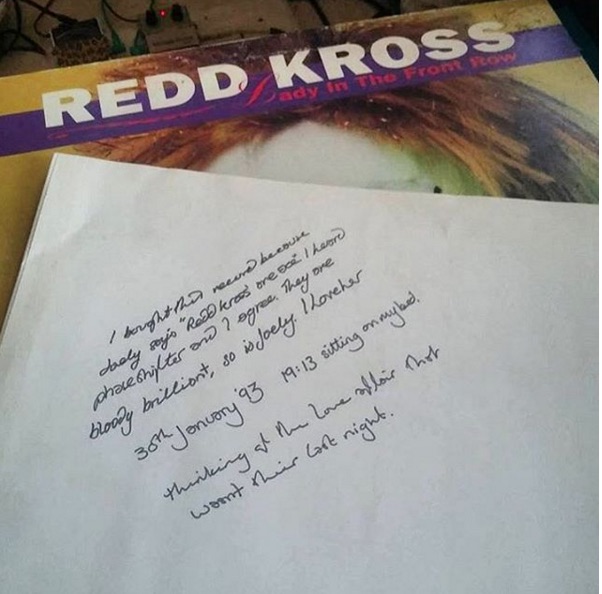 REDD KROSS
Lady In The Front Row
I bought this record because
Joely says "Redd Kross are ace" I heard
phaseshifter and I agree. They are
bloody brilliant, so is Joely. I love her
30th January '93 19:13 sitting on my bed.
thinking of the love affair that
wasn't last night.